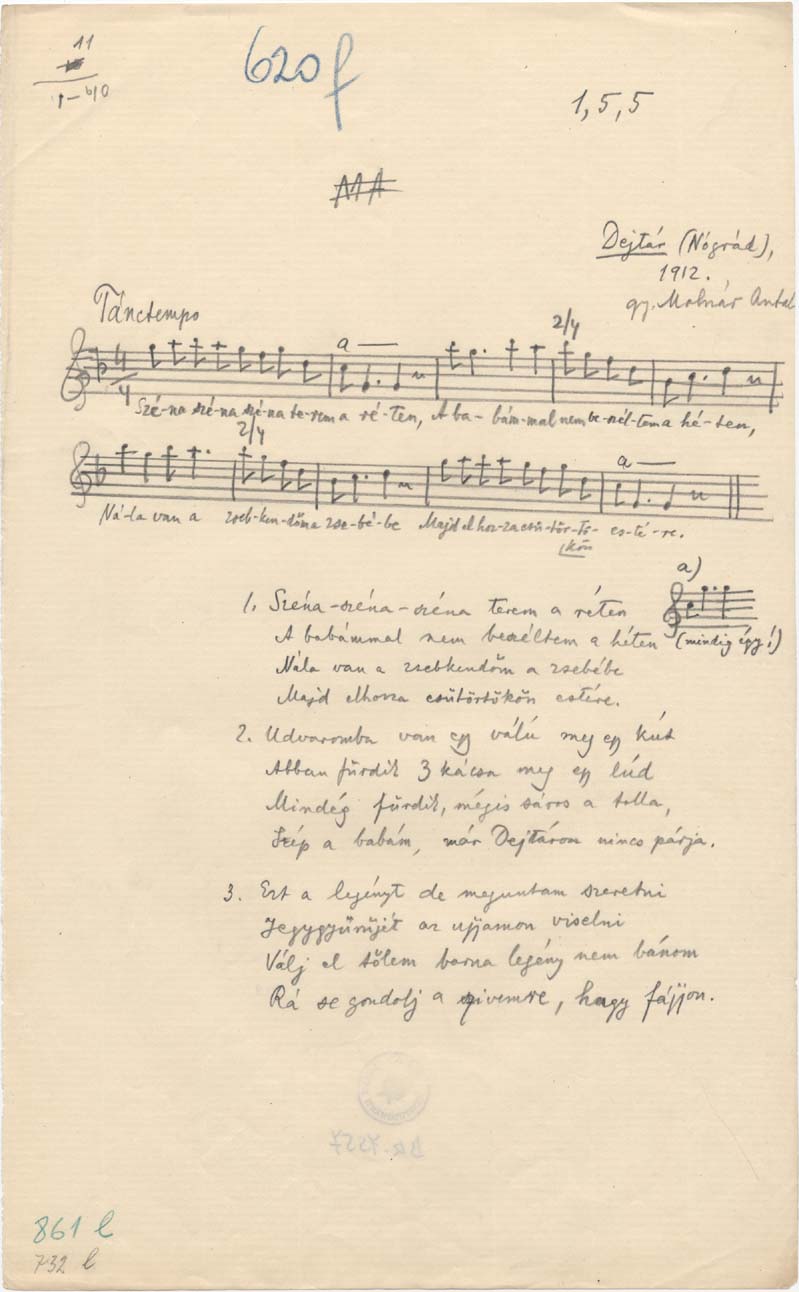 11
1–40
620 f
1, 5, 5
MA
Dejtár (Nógrád),
1912.
gy. Molnár Antal
Tánctempo
a
2/4
4/4
Szé-na szé-na szé-na te-rem a ré-ten, A ba-bám-mal nem be-szél-tem a hé-ten,
2/4
a
Ná-la van a zseb-ken-dőm a zse-bé-be Majd el hoz-za csü-tör-tö- es-té-re.
kön
a)
(mindig így!)
1. Széna-széna-széna terem a réten
A babámmal nem beszéltem a héten
Nála van a zsebkendőm a zsebébe
Majd elhozza csütörtökön estére.
2. Udvaromba van egy válú meg egy kút
Abban fürdik 3 kácsa meg egy lúd
Mindég fürdik, mégis sáros a tolla,
Szép a babám, már Dejtáron nincs párja.
3. Ezt a legényt de meguntam szeretni
Jegygyűrűjét az ujjamon viselni
Válj el tőlem barna legény nem bánom
Rá se gondolj a szivemre, hagy fájjon.
861 l
732 l